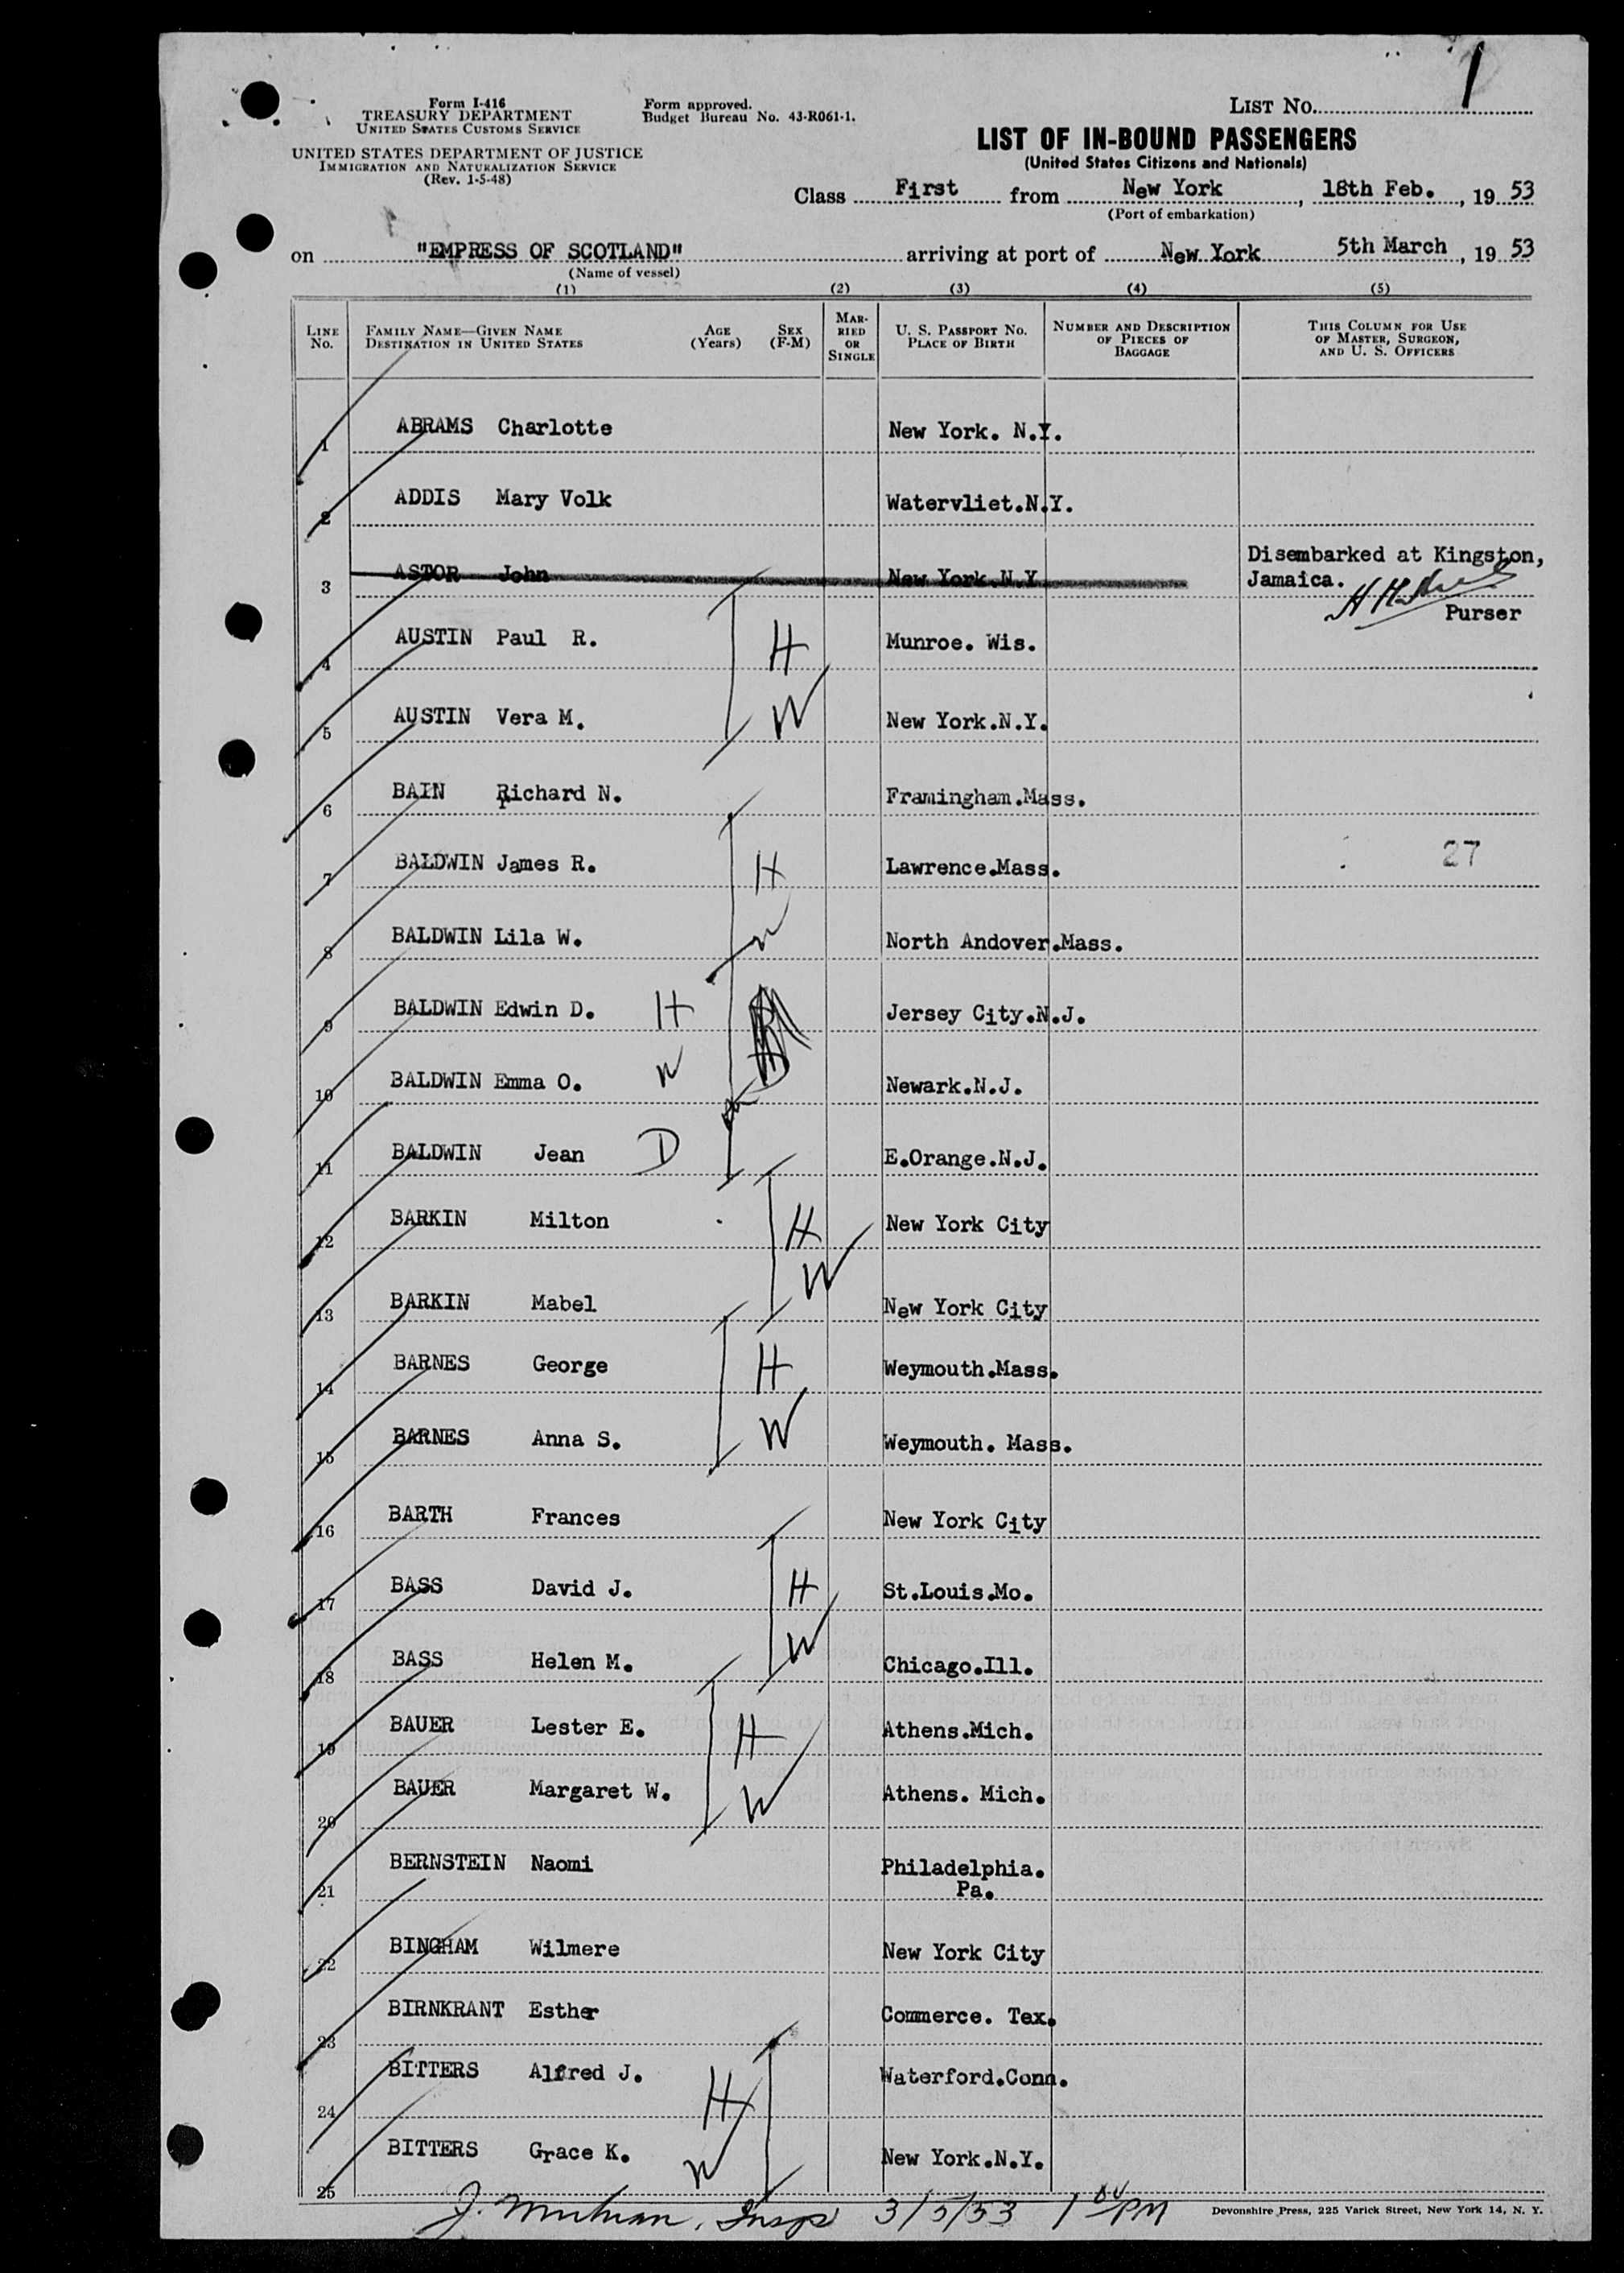 1
Form I-416
TREASURY DEPARTMENT
UNITED STATES CUSTOMS SERVICE
UNITED STATES DEPARTMENT OF JUSTICE
IMMIGRATION AND NATURALIZATION SERVICE
(Rev. 1-5-48)
Form approved.
Budget Bureau No. 43-R061-1.
LIST NO.
LIST OF IN-BOUND PASSENGERS
(United States Citizens and Nationals)
Class First from New York, 18th Feb., 19 53
(Port of embarkation)
on "EMPRESS OF SCOTLAND" arriving at port of New York 5th March, 19 53
(Name of vessel)
(1) (2) (3) (4) (5)
LINE No. FAMILY NAME—GIVEN NAME DESTINATION IN UNITED STATES AGE (Years) SEX (F-M) MARRIED OR SINGLE U. S. PASSPORT NO. PLACE OF BIRTH NUMBER AND DESCRIPTION OF PIECES OF BAGGAGE THIS COLUMN FOR USE OF MASTER, SURGEON, AND U. S. OFFICERS
1 ABRAMS Charlotte New York. N.Y.
2 ADDIS Mary Volk Watervliet.N.Y.
3 ASTOR John New York.N.Y Disembarked at Kingston,
Jamaica.
Purser
4 AUSTIN Paul R. H Munroe. Wis.
5 AUSTIN Vera M. W New York.N.Y.
6 BAIN Richard N. Framingham.Mass.
7 BALDWIN James R. H Lawrence.Mass. 27
8 BALDWIN Lila W. W North Andover.Mass.
9 BALDWIN Edwin D. H Jersey City.N.J.
10 BALDWIN Emma O. W Newark.N.J.
11 BALDWIN Jean D E.Orange.N.J.
12 BARKIN Milton H New York City
13 BARKIN Mabel W New York City
14 BARNES George H Weymouth.Mass.
15 BARNES Anna S. W Weymouth. Mass.
16 BARTH Frances New York City
17 BASS David J. H St.Louis.Mo.
18 BASS Helen M. W Chicago.Ill.
19 BAUER Lester E. H Athens.Mich.
20 BAUER Margaret W. W Athens. Mich.
21 BERNSTEIN Naomi Philadelphia.
Pa.
22 BINGHAM Wilmere New York City
23 BIRNKRANT Esther Commerce. Tex.
24 BITTERS Alfred J. H Waterford.Conn.
25 BITTERS Grace K. W New York.N.Y.
J. Insp 3/5/53 1 00 PM
Devonshire Press, 225 Varick Street, New York 14, N. Y.